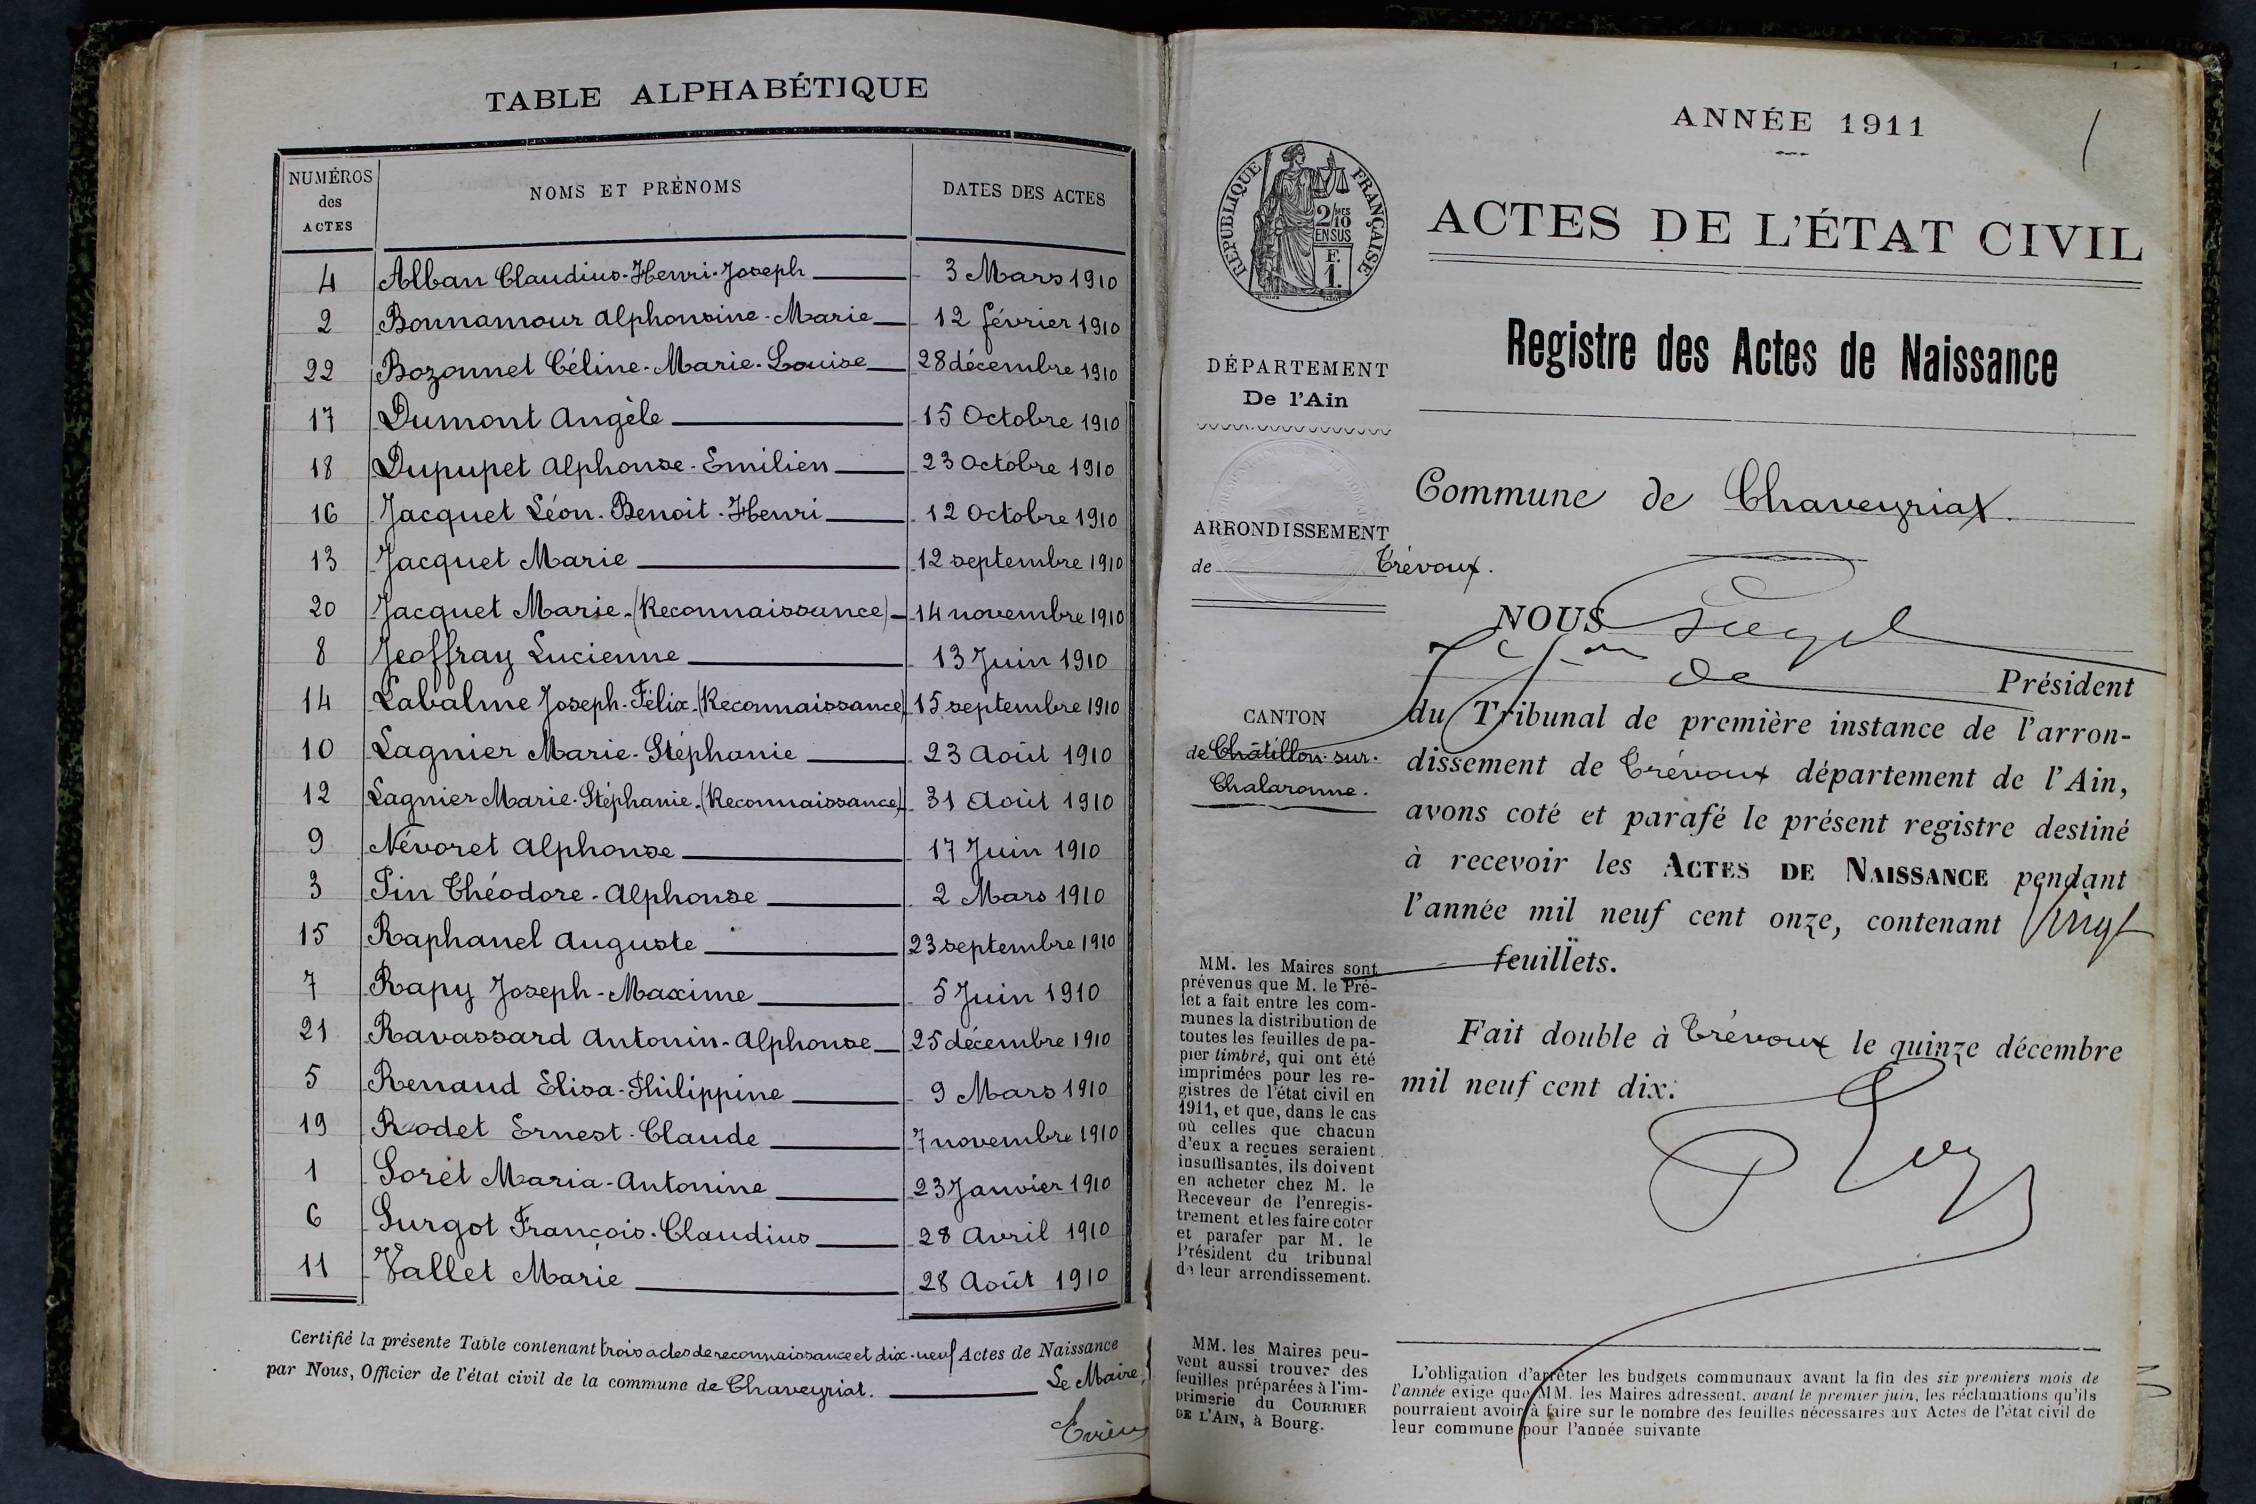 TABLE ALPHABÉTIQUE
NUMÉROS des ACTES NOMS ET PRÉNOMS DATES DES ACTES
4 Alban Claudius-Henri-Joseph 3 Mars 1910
2 Bonnamour Alphonsine-Marie 12 février 1910
22 Bozonnet Céline-Marie-Louise 28 décembre 1910
17 Dumont Angèle 15 Octobre 1910
18 Dupupet Alphonse-Emilien 23 Octobre 1910
16 Jacquet Léon-Benoit-Henri 12 Octobre 1910
13 Jacquet Marie 12 septembre 1910
20 Jacquet Marie-(Reconnaissance) 14 novembre 1910
8 Jeoffray Lucienne 13 Juin 1910
14 Labalme Joseph-Félix-(Reconnaissance) 15 septembre 1910
10 Lagnier Marie-Stéphanie 23 Août 1910
12 Lagnier Marie-Stéphanie-(Reconnaissance) 31 Août 1910
9 Névoret Alphonse 17 Juin 1910
3 Pin Théodore-Alphonse 2 Mars 1910
15 Raphanel Auguste 23 septembre 1910
7 Rapy Joseph-Maxime 5 Juin 1910
21 Ravassard Antonin-Alphonse 25 décembre 1910
5 Renaud Elisa-Philippine 9 Mars 1910
19 Rodet Ernest-Claude 7 novembre 1910
1 Soret Maria-Antonine 23 Janvier 1910
6 Surgot François-Claudius 28 Avril 1910
11 Vallet Marie 28 Août 1910
Certifié la présente Table contenant trois actes de reconnaissance et dix-neuf Actes de Naissance
par Nous, Officier de l'état civil de la commune de Chaveyriat. Le Maire,
ANNÉE 1911
1
RÉPUBLIQUE FRANÇAISE
2/10 MES
EN SUS
F.
1.
ACTES DE L'ÉTAT CIVIL
Registre des Actes de Naissance
DÉPARTEMENT
De l'Ain
ARRONDISSEMENT
de Trévoux.
CANTON
de Châtillon-sur-
Chalaronne.
Commune de Chaveyriat.
NOUS
de Président
du Tribunal de première instance de l'arron-
dissement de Trévoux département de l'Ain,
avons coté et parafé le présent registre destiné
à recevoir les ACTES DE NAISSANCE pendant
l'année mil neuf cent onze, contenant Vingt
feuillets.
Fait double à Trévoux le quinze décembre
mil neuf cent dix.
MM. les Maires sont
prévenus que M. le Pré-
fet a fait entre les com-
munes la distribution de
toutes les feuilles de pa-
pier timbré, qui ont été
imprimées pour les re-
gistres de l'état civil en
1911, et que, dans le cas
où celles que chacun
d'eux a reçues seraient
insuffisantes, ils doivent
en acheter chez M. le
Receveur de l'enregis-
trement et les faire coter
et parafer par M. le
Président du tribunal
de leur arrondissement.
MM. les Maires peu-
vent aussi trouver des
feuilles préparées à l'im-
primerie du COURRIER
DE L'AIN, à Bourg.
L'obligation d'arrêter les budgets communaux avant la fin des six premiers mois de
l'année exige que MM. les Maires adressent, avant le premier juin, les réclamations qu'ils
pourraient avoir à faire sur le nombre des feuilles nécessaires aux Actes de l'état civil de
leur commune pour l'année suivante